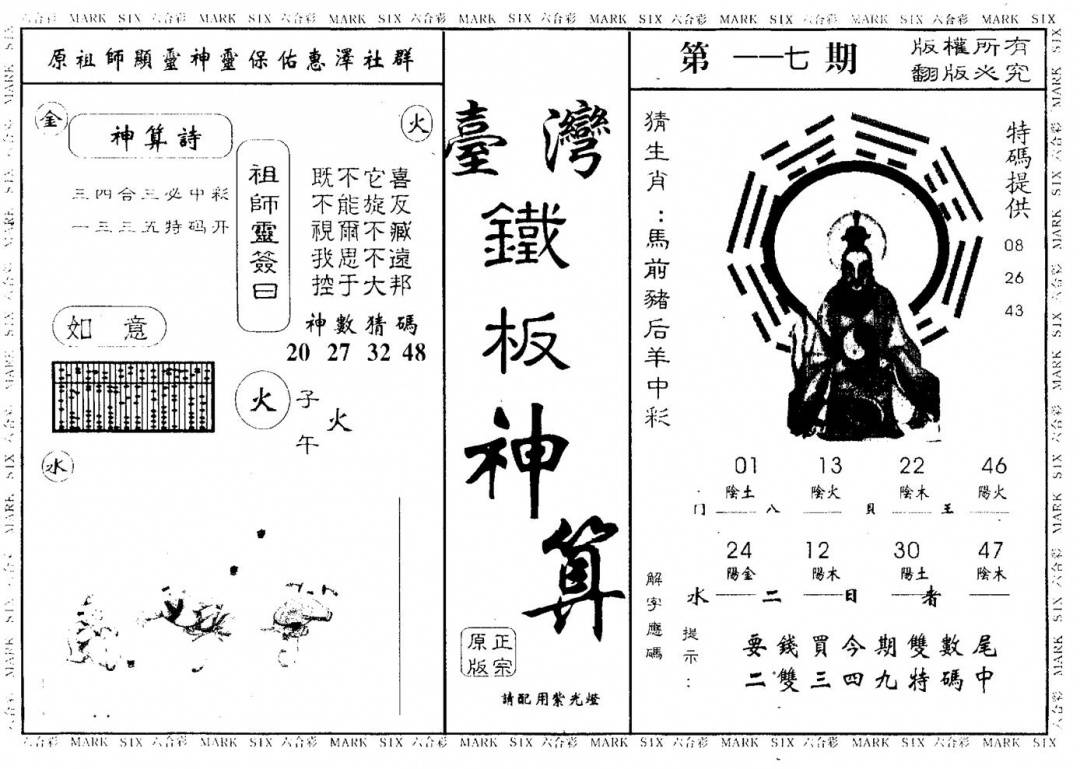 六合彩 MARK SIX 六合彩 MARK SIX 六合彩 MARK SIX 六合彩 MARK SIX 六合彩 MARK SIX 六合彩 MARK SIX 六合彩 MARK SIX 六合彩 MARK SIX
原祖師顯靈神靈保佑惠澤社群
金
神算詩
火
三四合三必中彩
一三三五特码开
祖師靈簽曰
既不它喜
不能旋反
視爾不臧
我思不遠
控于大邦
神數猜碼
20 27 32 48
如意
火
子午
火
水
臺灣
鐵板神算
原版正宗
請配用紫光燈
第一一七期
版權所有
翻版必究
猜生肖：馬前豬后羊中彩
特碼提供
08
26
43
01 13 22 46
陰土 陰火 陰木 陽火
门 八 貝 王
24 12 30 47
陽金 陽木 陽土 陰木
水 二 日 者
解字應碼
提示：
要錢買今期雙數尾
二雙三四九特碼中
六合彩 MARK SIX 六合彩 MARK SIX 六合彩 MARK SIX 六合彩 MARK SIX 六合彩 MARK SIX 六合彩 MARK SIX 六合彩 MARK SIX 六合彩 MARK SIX